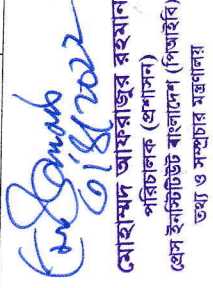 মোহাম্মদ আফরাজুর রহমান
পরিচালক (প্রশাসন)
প্রেস ইনস্টিটিউট বাংলাদেশ (পিআইবি)
তথ্য ও সম্প্রচার মন্ত্রণালয়